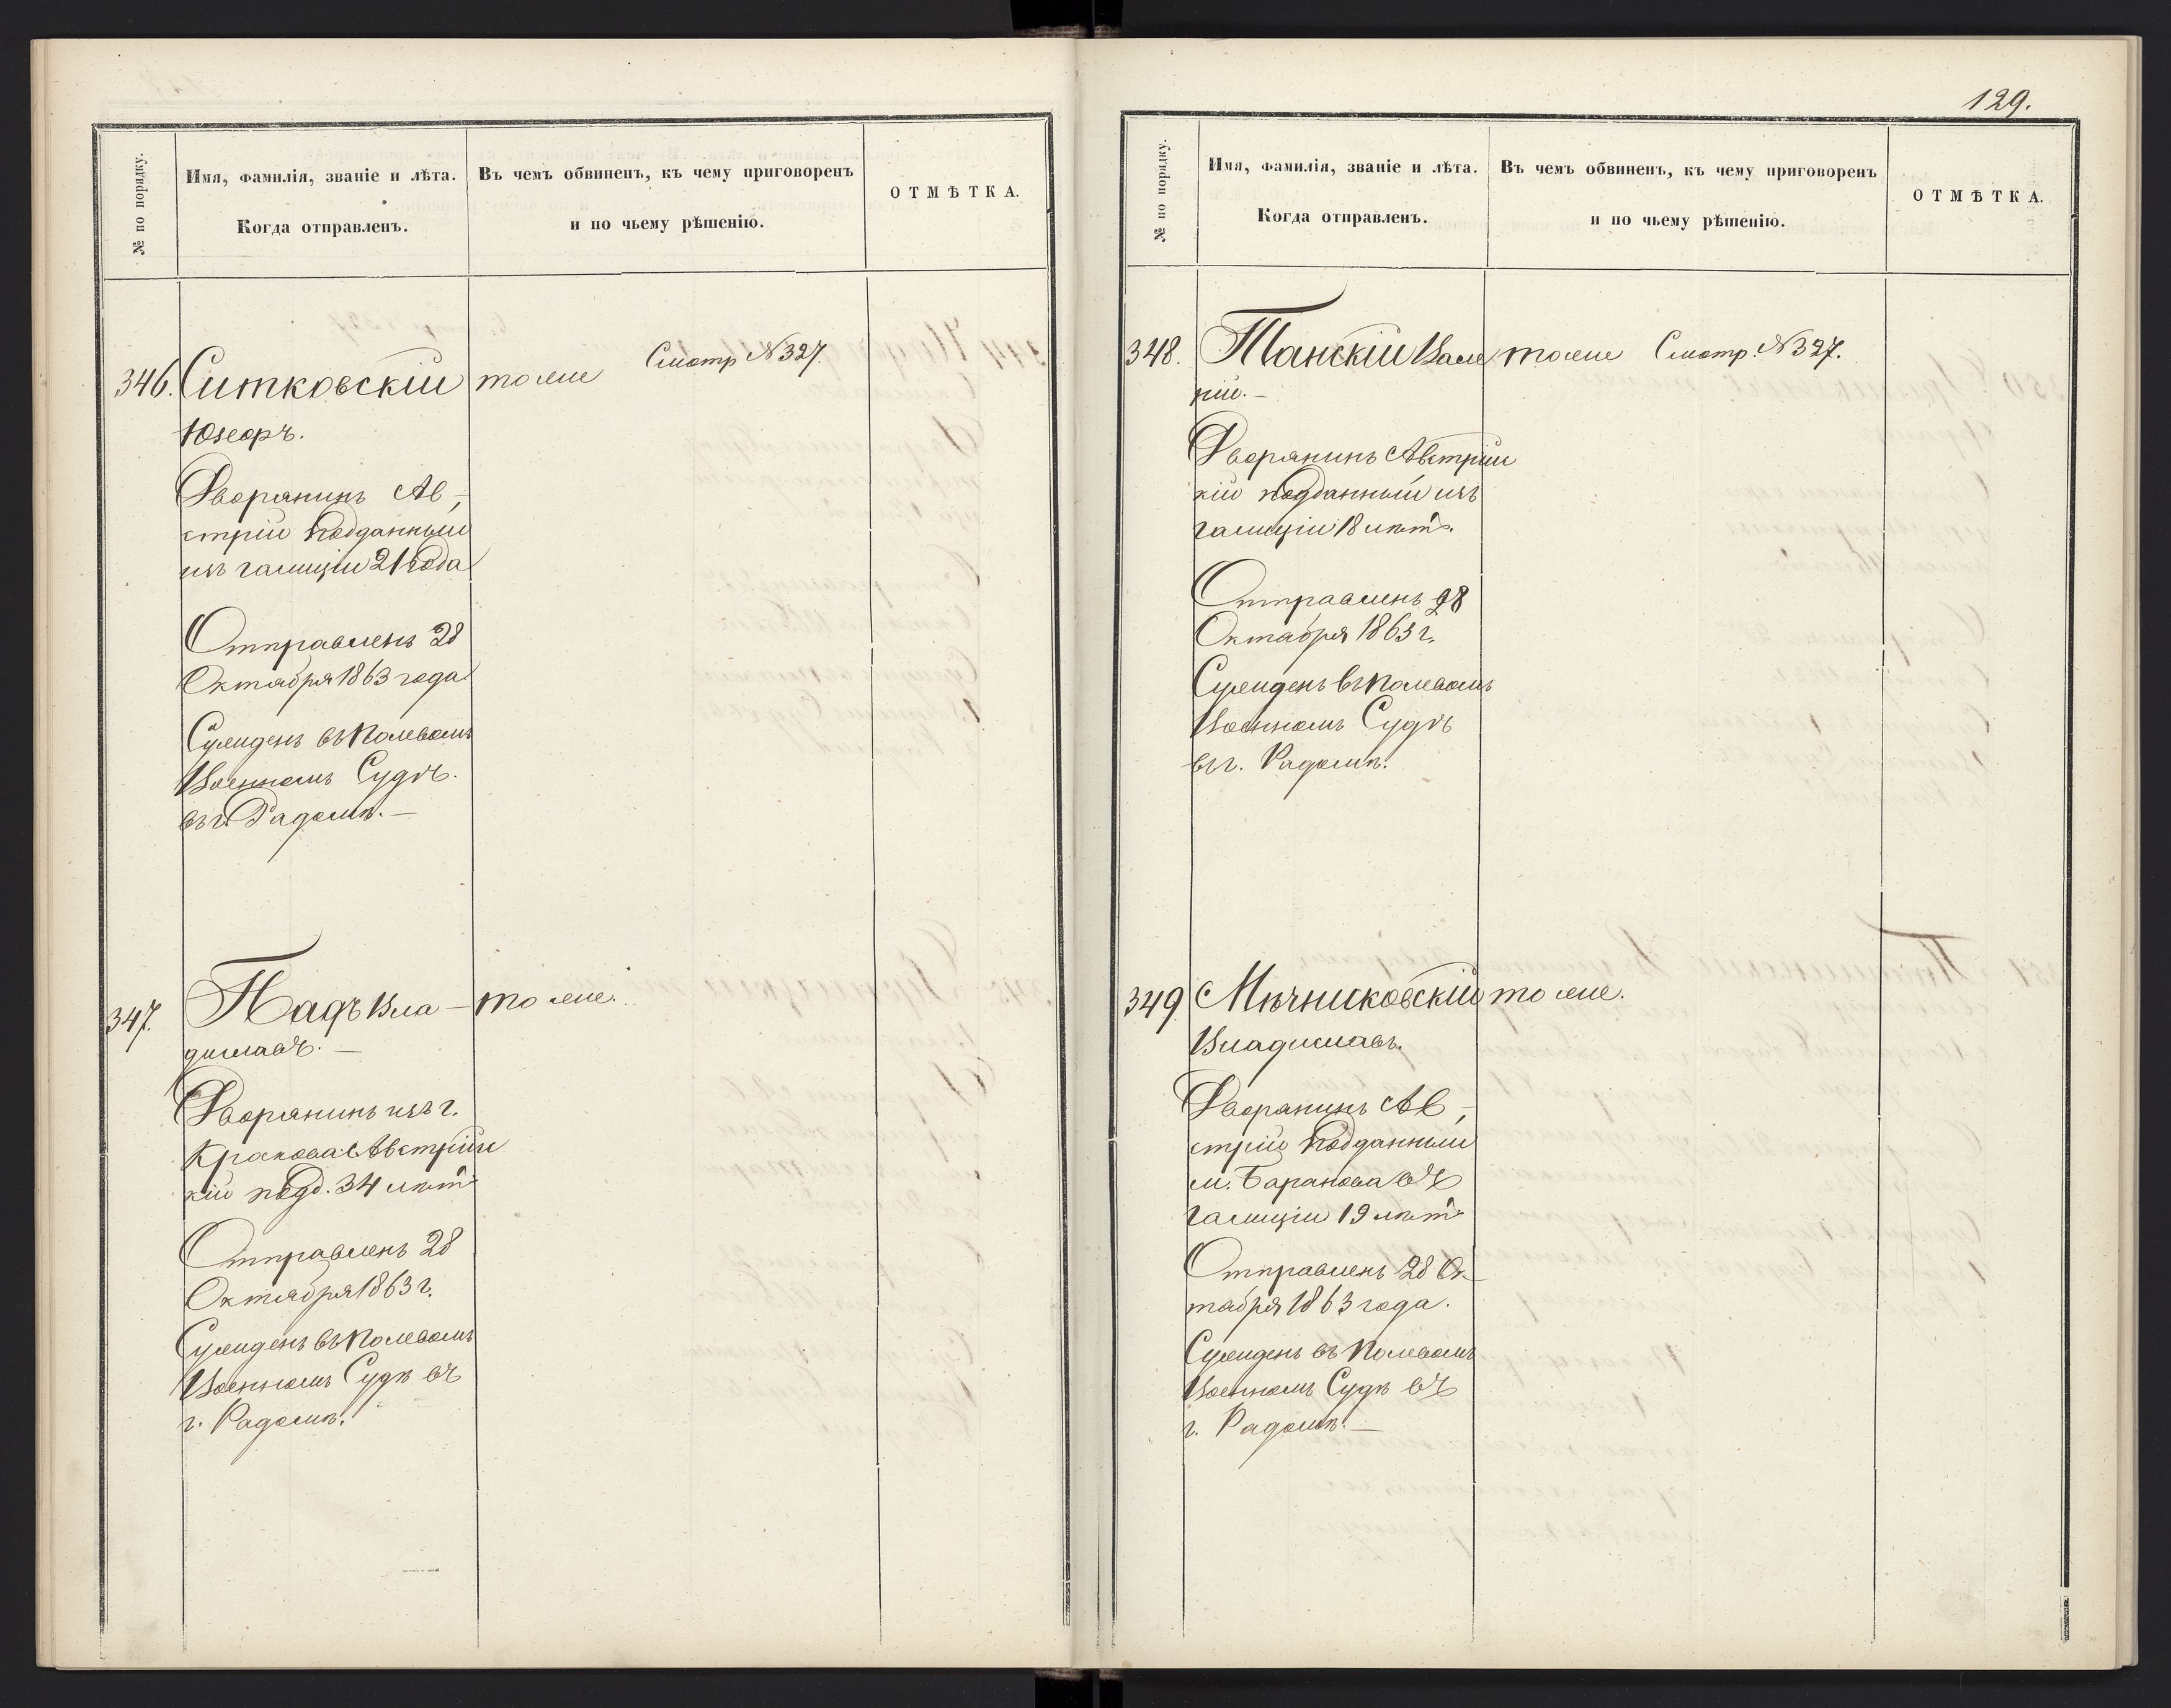 № по порядку.
Имя, фамилія, званіе и лѣта.
Когда отправленъ.
Въ чемъ обвиненъ, къ чему приговоренъ
и по чьему рѣшенію.
ОТМѢТКА.
346. Ситковскій тоже Смотр №327.
Юзефъ.
Дворянинъ Ав-
стрій подданный
изъ галиціи 21 года
Отправленъ 28
Октября 1863 года
Сужденъ въ Полевомъ
Военномъ Судѣ.
въ г. Радомѣ.—
347. Падъ Вла- тоже.
диславъ.—
Дворянинъ изъ г.
Кракова Австрійс
кій подд. 34 лѣтъ
Отправленъ 28
Октября 1863 г.
Сужденъ въ Полевомъ
Военномъ Судѣ въ
г. Радомѣ.
129.
№ по порядку.
Имя, фамилія, званіе и лѣта.
Когда отправленъ.
Въ чемъ обвиненъ, къ чему приговоренъ
и по чьему рѣшенію.
ОТМѢТКА.
348. Танскій Вале тоже Смотр. №327.
рій.—
Дворянинъ Австрійс
кій подданный изъ
галиціи 18 лѣтъ.
Отправленъ 28
Октября 1863 г.
Сужденъ въ Полевомъ
Военномъ Судѣ
въ г. Радомѣ.
349 Мѣчниковскій тоже.
Владиславъ.
Дворянинъ Ав-
стрій подданный
м. Баранова въ
Галиціи 19 лѣтъ
Отправленъ 28 Ок-
тября 1863 года.
Сужденъ въ Полевомъ
Военномъ Судѣ въ
г. Радомѣ.—